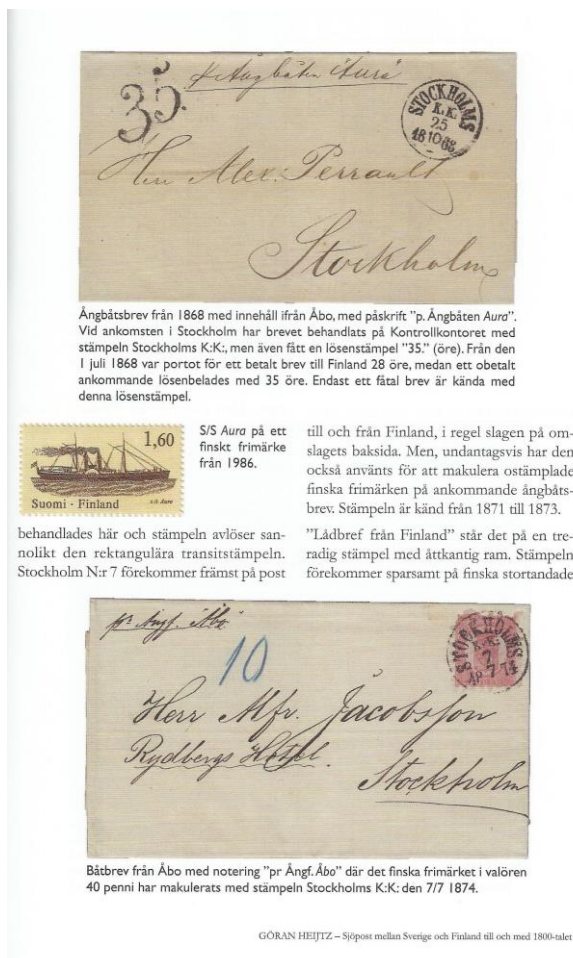 pr Ångbåten "Aura"
35.
STOCKHOLMS
K.K.
25
18 10 68
Herr Alex: Perrault
Stockholm
Ångbåtsbrev från 1868 med innehåll ifrån Åbo, med påskrift "p. Ångbåten Aura".
Vid ankomsten i Stockholm har brevet behandlats på Kontrollkontoret med
stämpeln Stockholms K:K:, men även fått en lösenstämpel "35." (öre). Från den
1 juli 1868 var portot för ett betalt brev till Finland 28 öre, medan ett obetalt
ankommande lösenbelades med 35 öre. Endast ett fåtal brev är kända med
denna lösenstämpel.
1,60
Suomi - Finland
s/s Aura
S/S Aura på ett
finskt frimärke
från 1986.
behandlades här och stämpeln avlöser san-
nolikt den rektangulära transitstämpeln.
Stockholm N:r 7 förekommer främst på post
till och från Finland, i regel slagen på om-
slagets baksida. Men, undantagsvis har den
också använts för att makulera ostämplade
finska frimärken på ankommande ångbåts-
brev. Stämpeln är känd från 1871 till 1873.
"Lådbref från Finland" står det på en tre-
radig stämpel med åttkantig ram. Stämpeln
förekommer sparsamt på finska stortandade
pr Angf. "Åbo"
10
STOCKHOLMS
K.K.
7
18 7 74
Herr Mfr. Jacobsson
Rydbergs Hotel.
Stockholm
Båtbrev från Åbo med notering "pr Ångf. Åbo" där det finska frimärket i valören
40 penni har makulerats med stämpeln Stockholms K:K: den 7/7 1874.
GÖRAN HEIJTZ – Sjöpost mellan Sverige och Finland till och med 1800-talet